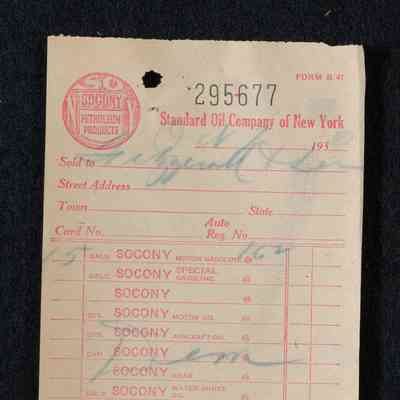 FORM B 47
SOCONY
PETROLEUM
PRODUCTS
295677
Standard Oil Company of New York
193
Sold to Fitzgerald & Son
Street Address
Town State
Card No. Auto Reg. No.
15 GALS SOCONY MOTOR GASOLINE @ 16
GALS SOCONY SPECIAL GASOLINE @
SOCONY @
SOCONY MOTOR OIL @
SOCONY AIRCRAFT OIL @
SOCONY @
SOCONY GEAR @
SOCONY